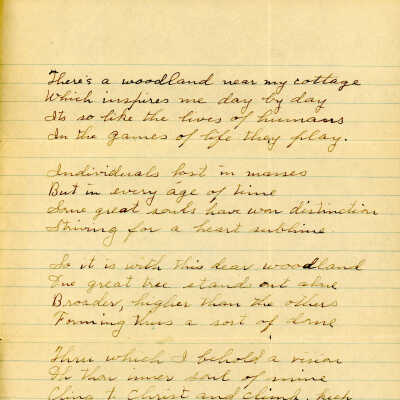 There's a woodland near my cottage
Which inspires me day by day
Its so like the lives of humans
In the games of life they play.
Individuals lost in masses
But in every age of time
Some great souls have won distinction
Striving for a heart sublime.
So it is with this dear woodland
One great tree stands out alone
Broader, higher than the others
Forming thus a sort of dome
Thru which I behold a vision
Oh thou inner soul of mine
Cling to Christ and climb, high